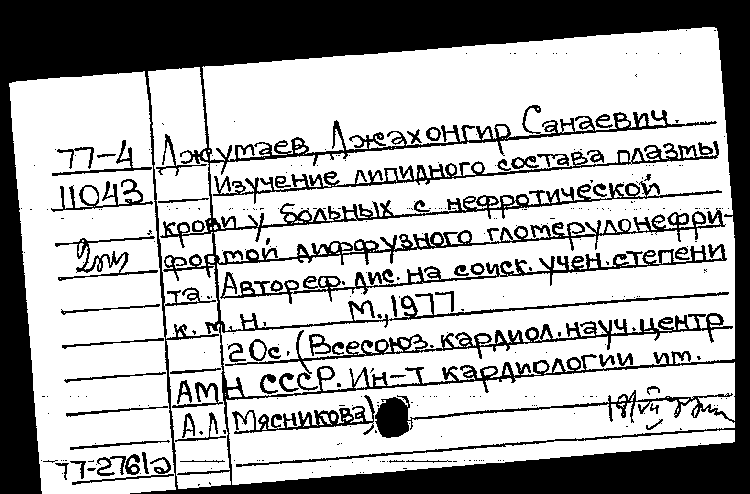 77-4 Джумаев, Джахонгир Санаевич.
11043 Изучение липидного состава плазмы
крови у больных с нефротической
форомой диффузного гломерулонефри-
та. Автореф. дис. на соиск. учен. степени
к. м. н. М., 1977.
20с. (Всесоюз. кардиол. науч. центр
АМН СССР. Ин-т кардиологии им.
А.Л. Мясникова)
77-27612